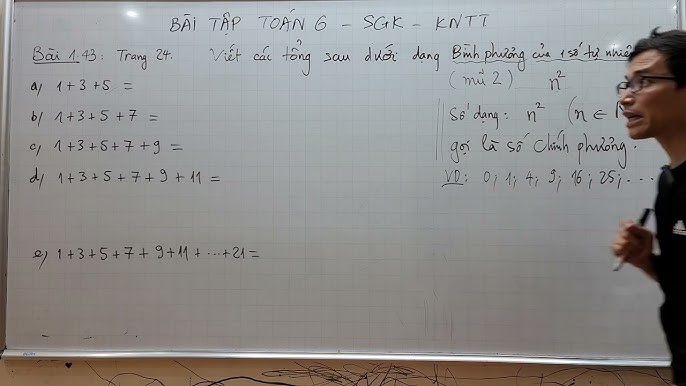 BÀI TẬP TOÁN 6 - SGK - KNTT
Bài 1.43: Trang 24. Viết các tổng sau dưới dạng Bình phương của 1 số tự nhiên
(mũ 2) n²
a) 1+3+5 =
b) 1+3+5+7 =
c) 1+3+5+7+9 =
d) 1+3+5+7+9+11 =
e) 1+3+5+7+9+11+...+21=
Số dạng: n² (n ∈
gọi là số chính phương.
VD: 0; 1; 4; 9; 16; 25; ...